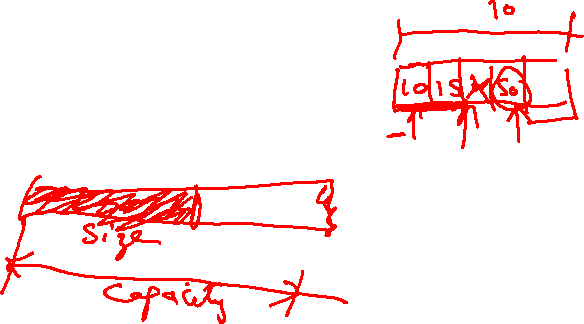 10
10 15 50
size
capacity